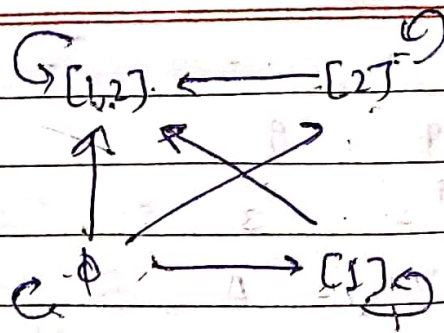 [1,2] [2]
ϕ [1]